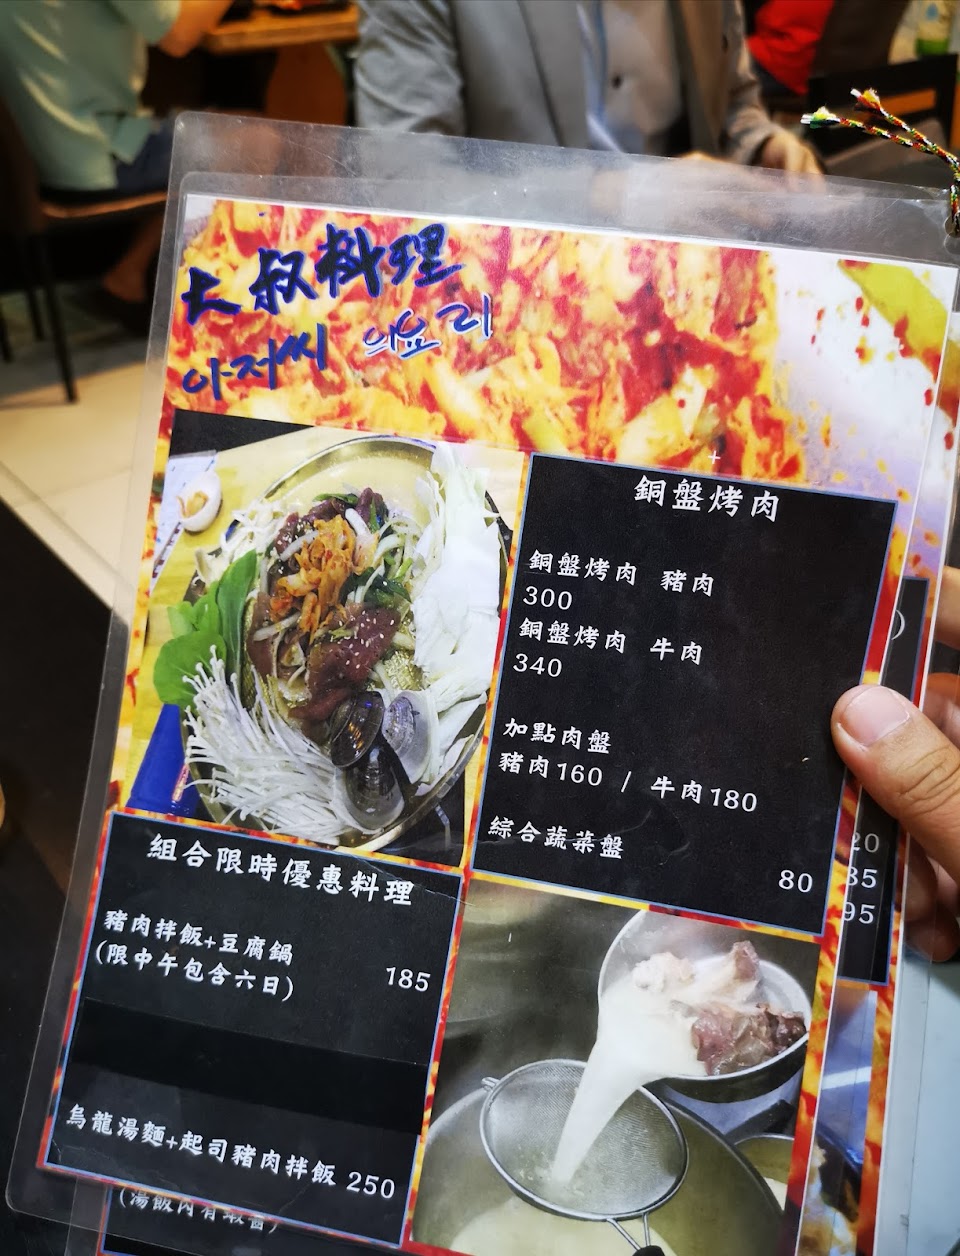 大叔料理
아저씨 의요리
銅盤烤肉
銅盤烤肉 豬肉
300
銅盤烤肉 牛肉
340
加點肉盤
豬肉160 / 牛肉180
綜合蔬菜盤
80
組合限時優惠料理
豬肉拌飯+豆腐鍋
(限中午包含六日) 185
烏龍湯麵+起司豬肉拌飯 250
20
35
95